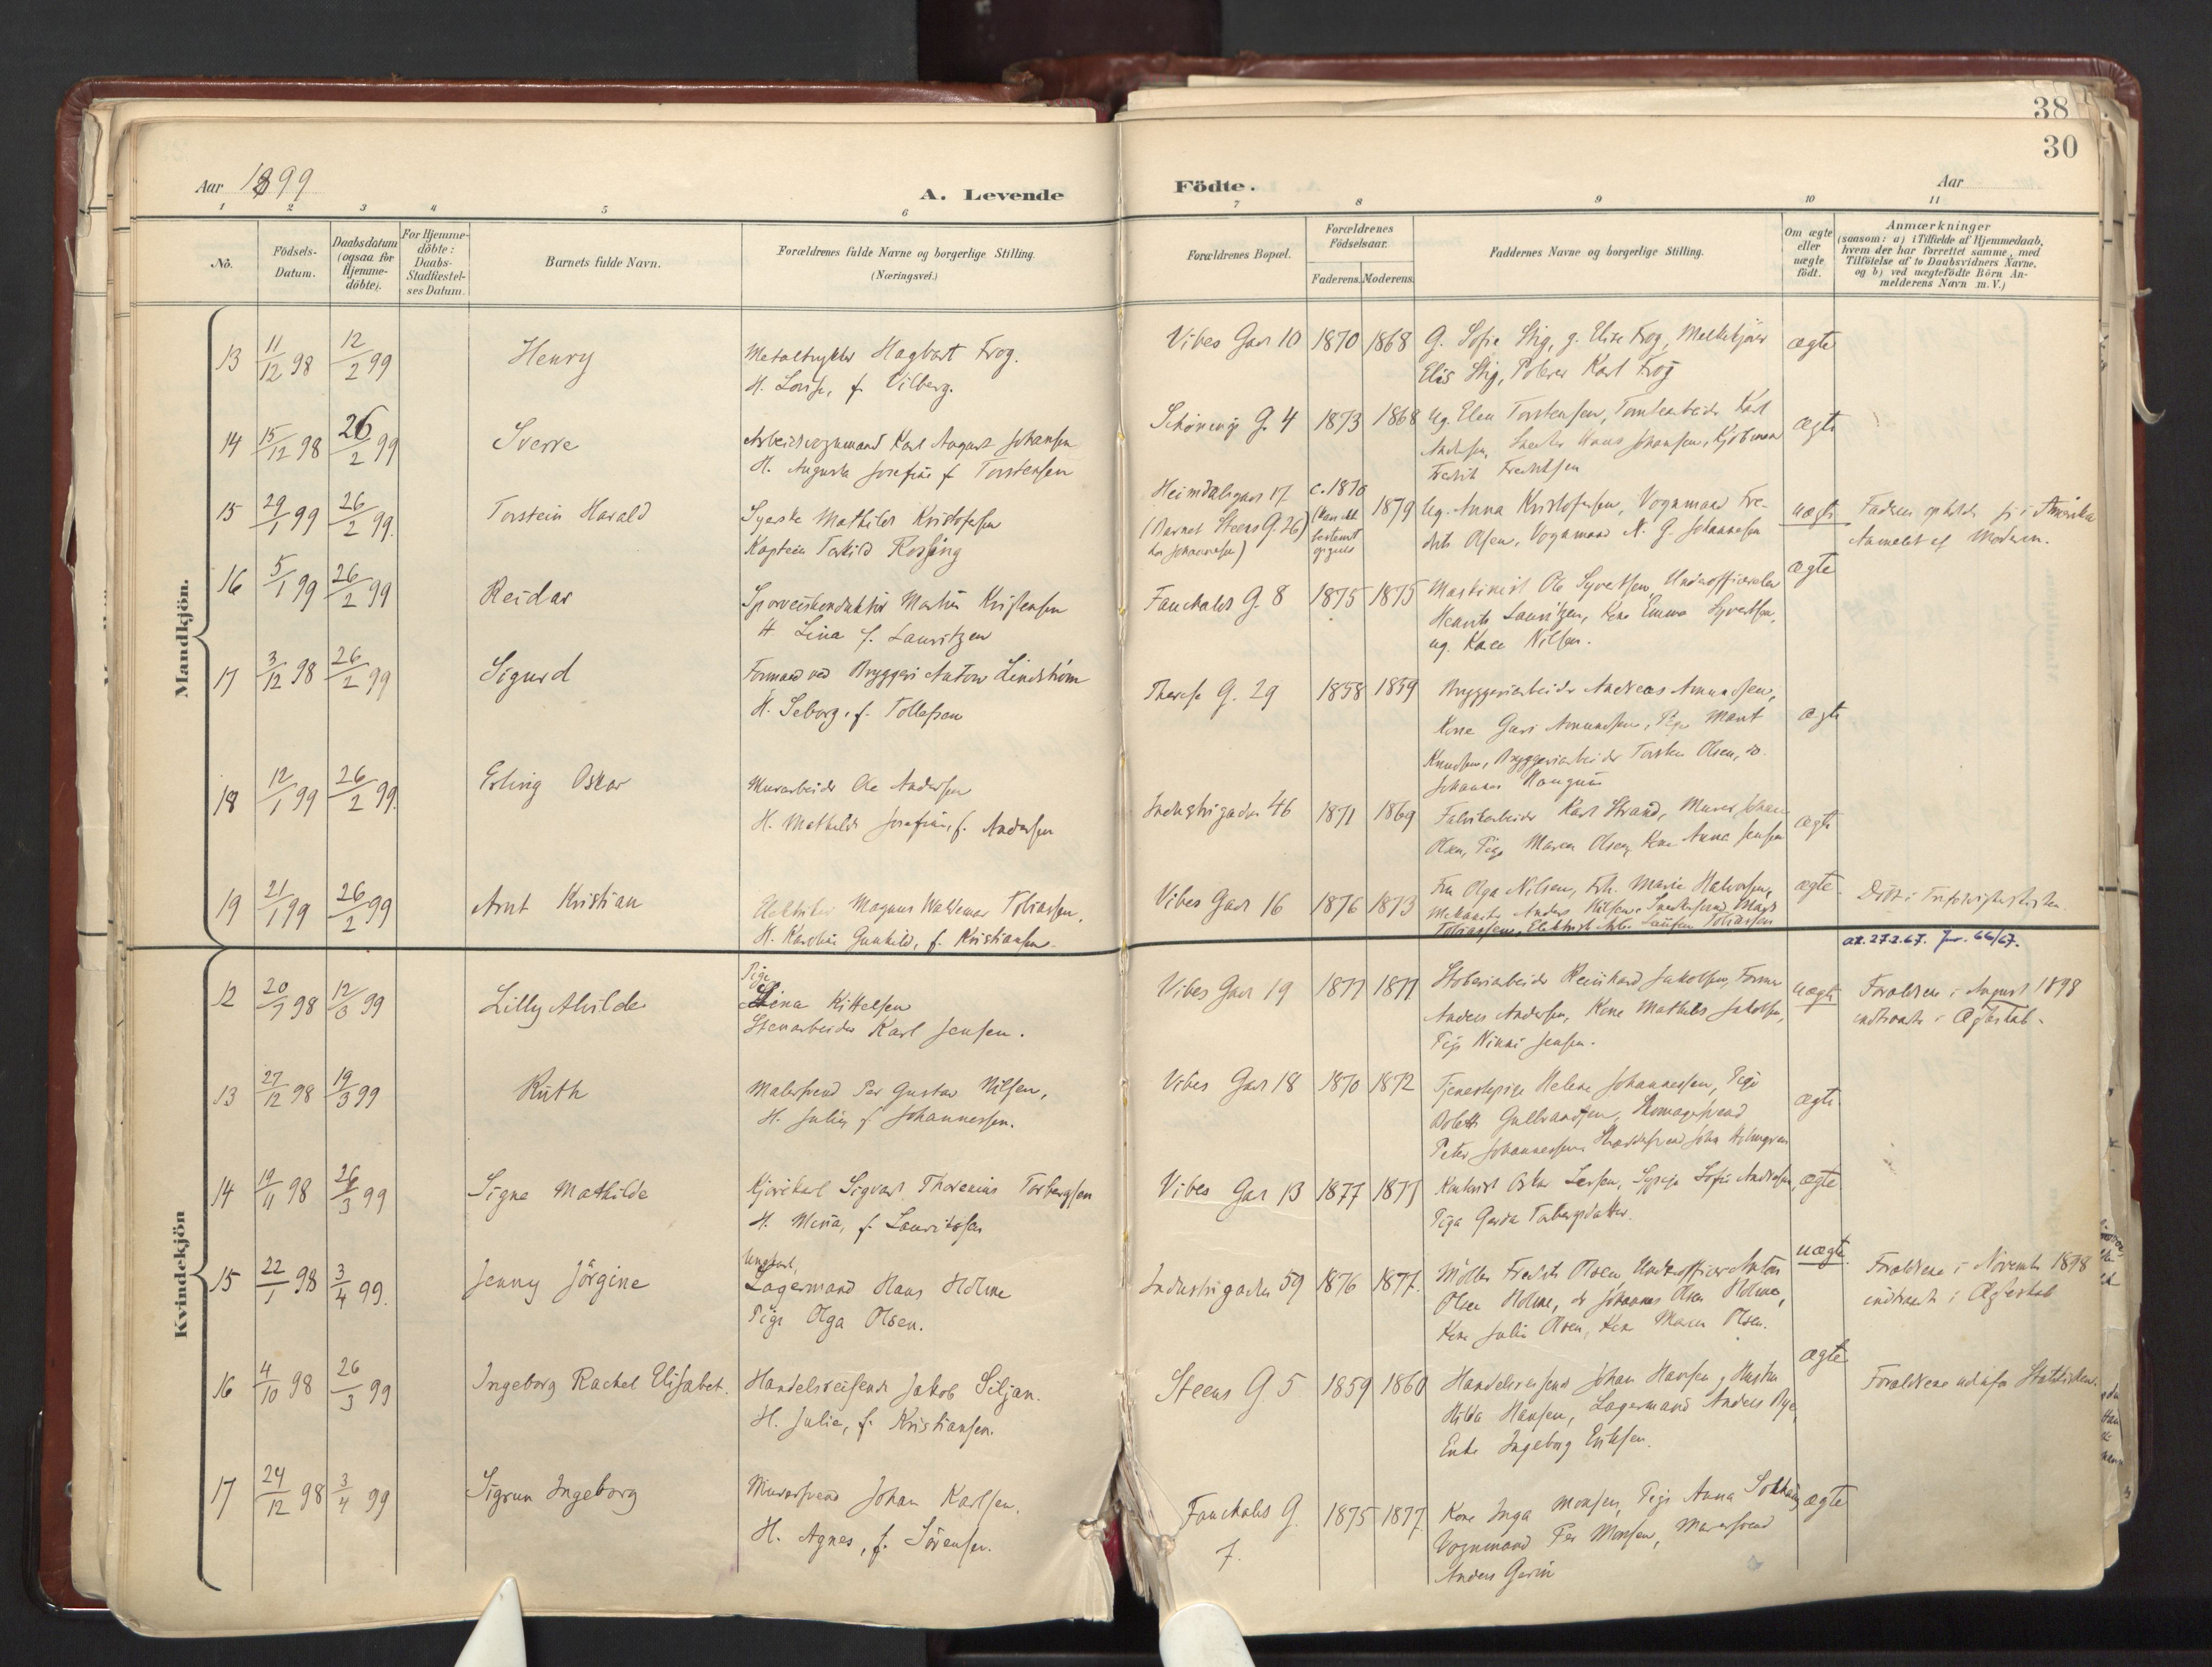 38
30
Aar 1899
A. Levende
Födte.
Aar
1 2 3 4 5 6 7 8 9 10 11
No.
Födsels-
Datum.
Daabsdatum
(ogsaa for
Hjemme-
döbte).
For Hjemme-
döbte:
Daabs-
Stadfæstel-
ses Datum.
Barnets fulde Navn.
Forældrenes fulde Navne og borgerlige Stilling.
(Næringsvei.)
Forældrenes Bopæl.
Forældrenes
Födselsaar.
Faderens. Moderens.
Faddernes Navne og borgerlige Stilling.
Om ægte
eller
uægte
födt.
Anmærkninger
(saasom: a) i Tilfælde af Hjemmedaab,
hvem der har forrettet samme, med
Tilföielse af to Daabsvidners Navne,
og b) ved uægtefödte Börn An-
melderens Navn m. V.)
Mandkjön.
13 11/12 98 12/2 99 Henry
Hagbart Frog.
H. Lovise, f. Vilberg.
Vibes Gade 10 1870 1868 G. Sofie Stig, g. Elise Frog,
Elis Stig, Polerer Karl Frog
ægte
14 15/12 98 26/2 99 Sverre
Karl August Johansen
H. Augusta Josefine f. Torstensen
G. 4 1873 1868 Ug. Elen Torstensen, Karl
Hans Johansen,
Fredrik Fredriksen
ægte
15 29/1 99 26/2 99. Torstein Harald
Syerske Mathilde Kristofersen
Kaptein Terkild Rossing
Heimdalsgade 17
(Barnet Steens G. 26)
hos Johannesen)
c. 1870
1879 Ug. Anna Kristofersen, Vognmand Fre-
drik Olsen, Vognmand N. G. Johannesen
uægte
Faderen opholder sig i Amerika
Anmeldt af Moderen.
16 5/1 99 26/2 99 Reidar
Martin Kristensen
H. Lina f. Lauritzen
Fauchalds G. 8 1875 1875 Maskinist Ole Syvertsen,
Lauritzen, Kone Emma Syvertsen,
ug. Nilsen.
ægte
17 3/12 98 26/2 99 Sigurd
Formand ved Bryggeri Anton Lindström
H. Seborg, f. Tollefsen
Therese G. 29 1858 1859 Bryggeriarbeider Andreas Amundsen,
Kone Guri Amundsen, Pige Marit
Knudsen, Bryggeriarbeider Torsten Olsen, do.
Johannes Haugum
ægte
18 12/1 99 26/2 99. Erling Oskar
Murarbeider Ole Andersen
H. Mathilde Josefine, f. Andersen
Industrigaden 46 1871 1869 Fabrikarbeider Karl Strand, Murer Johan
Olsen, Pige Maren Olsen, Kone Anna Jensen
ægte
19 21/1 99 26/2 99 Arnt Kristian
Magnus Waldemar Tobiassen,
H. Karoline Gunhild, f. Kristiansen.
Vibes Gade 16 1876 1873 Fru Olga Nilsen, Frk. Marie Halvorsen,
Anders Nilsen,
Tobiassen
ægte
27.2.67. Jnr. 66/67.
Kvindekjön
12 20/7 98 12/3 99 Lilly Alvilde
Pige
Lina Kittelsen
Stenarbeider Karl Jensen.
Vibes Gade 19 1877 1877 Støberiarbeider Reinhard Jakobsen, Former
Anders Andersen, Kone Mathilde Jakobsen,
Pige Ninni Jensen.
uægte
Forældrene i August 1898
indtraadt i Ægteskab.
13 27/12 98 19/3 99 Ruth
Malersvend Per Gustav Nilsen,
H. Julie, f. Johannessen.
Vibes Gade 18 1870 1872 Tjenestepige Helene Johannessen, Pige
Gulbrandsen,
Peter Johannessen, John Holmgren
ægte.
14 19/11 98 26/3 99 Signe Mathilde
Kjørekarl Sigvart Thorenius Torbergsen
H. Mina, f. Lauritsen
Vibes Gade 13 1877 1877 Kontorist Oskar Larsen, Sypige Sofie Andersen,
Pige Gerda Torbergsdatter.
ægte
15 22/1 98 3/4 99. Jenny Jörgine
Ungkarl,
Lagermand Hans Holme
Pige Olga Olsen.
Industrigaden 59 1876 1877. Møller Fredrik Olsen, Underofficer Anton
Olsen Holme, do Johannes Olsen Holme,
Kone Julie Olsen, Kone Maren Olsen.
uægte
Forældrene i November 1898
indtraadt i Ægteskab
16 4/10 98 26/3 99 Ingeborg Rachel Elisabet.
Handelsreisende Jakob Siljan.
H. Julie, f. Kristiansen.
Steens G. 5 1859 1860 Handelsreisende Johan Hansen, Hustru
Hilda Hansen, Lagermand Anders Rye,
Enke Ingeborg Eriksen.
ægte
Forældrene udenfor Statskirken.
17 24/12 98 3/4 99 Sigrun Ingeborg
Murersvend Johan Karlsen.
H. Agnes, f. Sörensen.
Fauchalds G.
7.
1875 1877. Kone Inga Monsen, Pige Anna
Vognmand Per Monsen, Murersvend
Anders
ægte